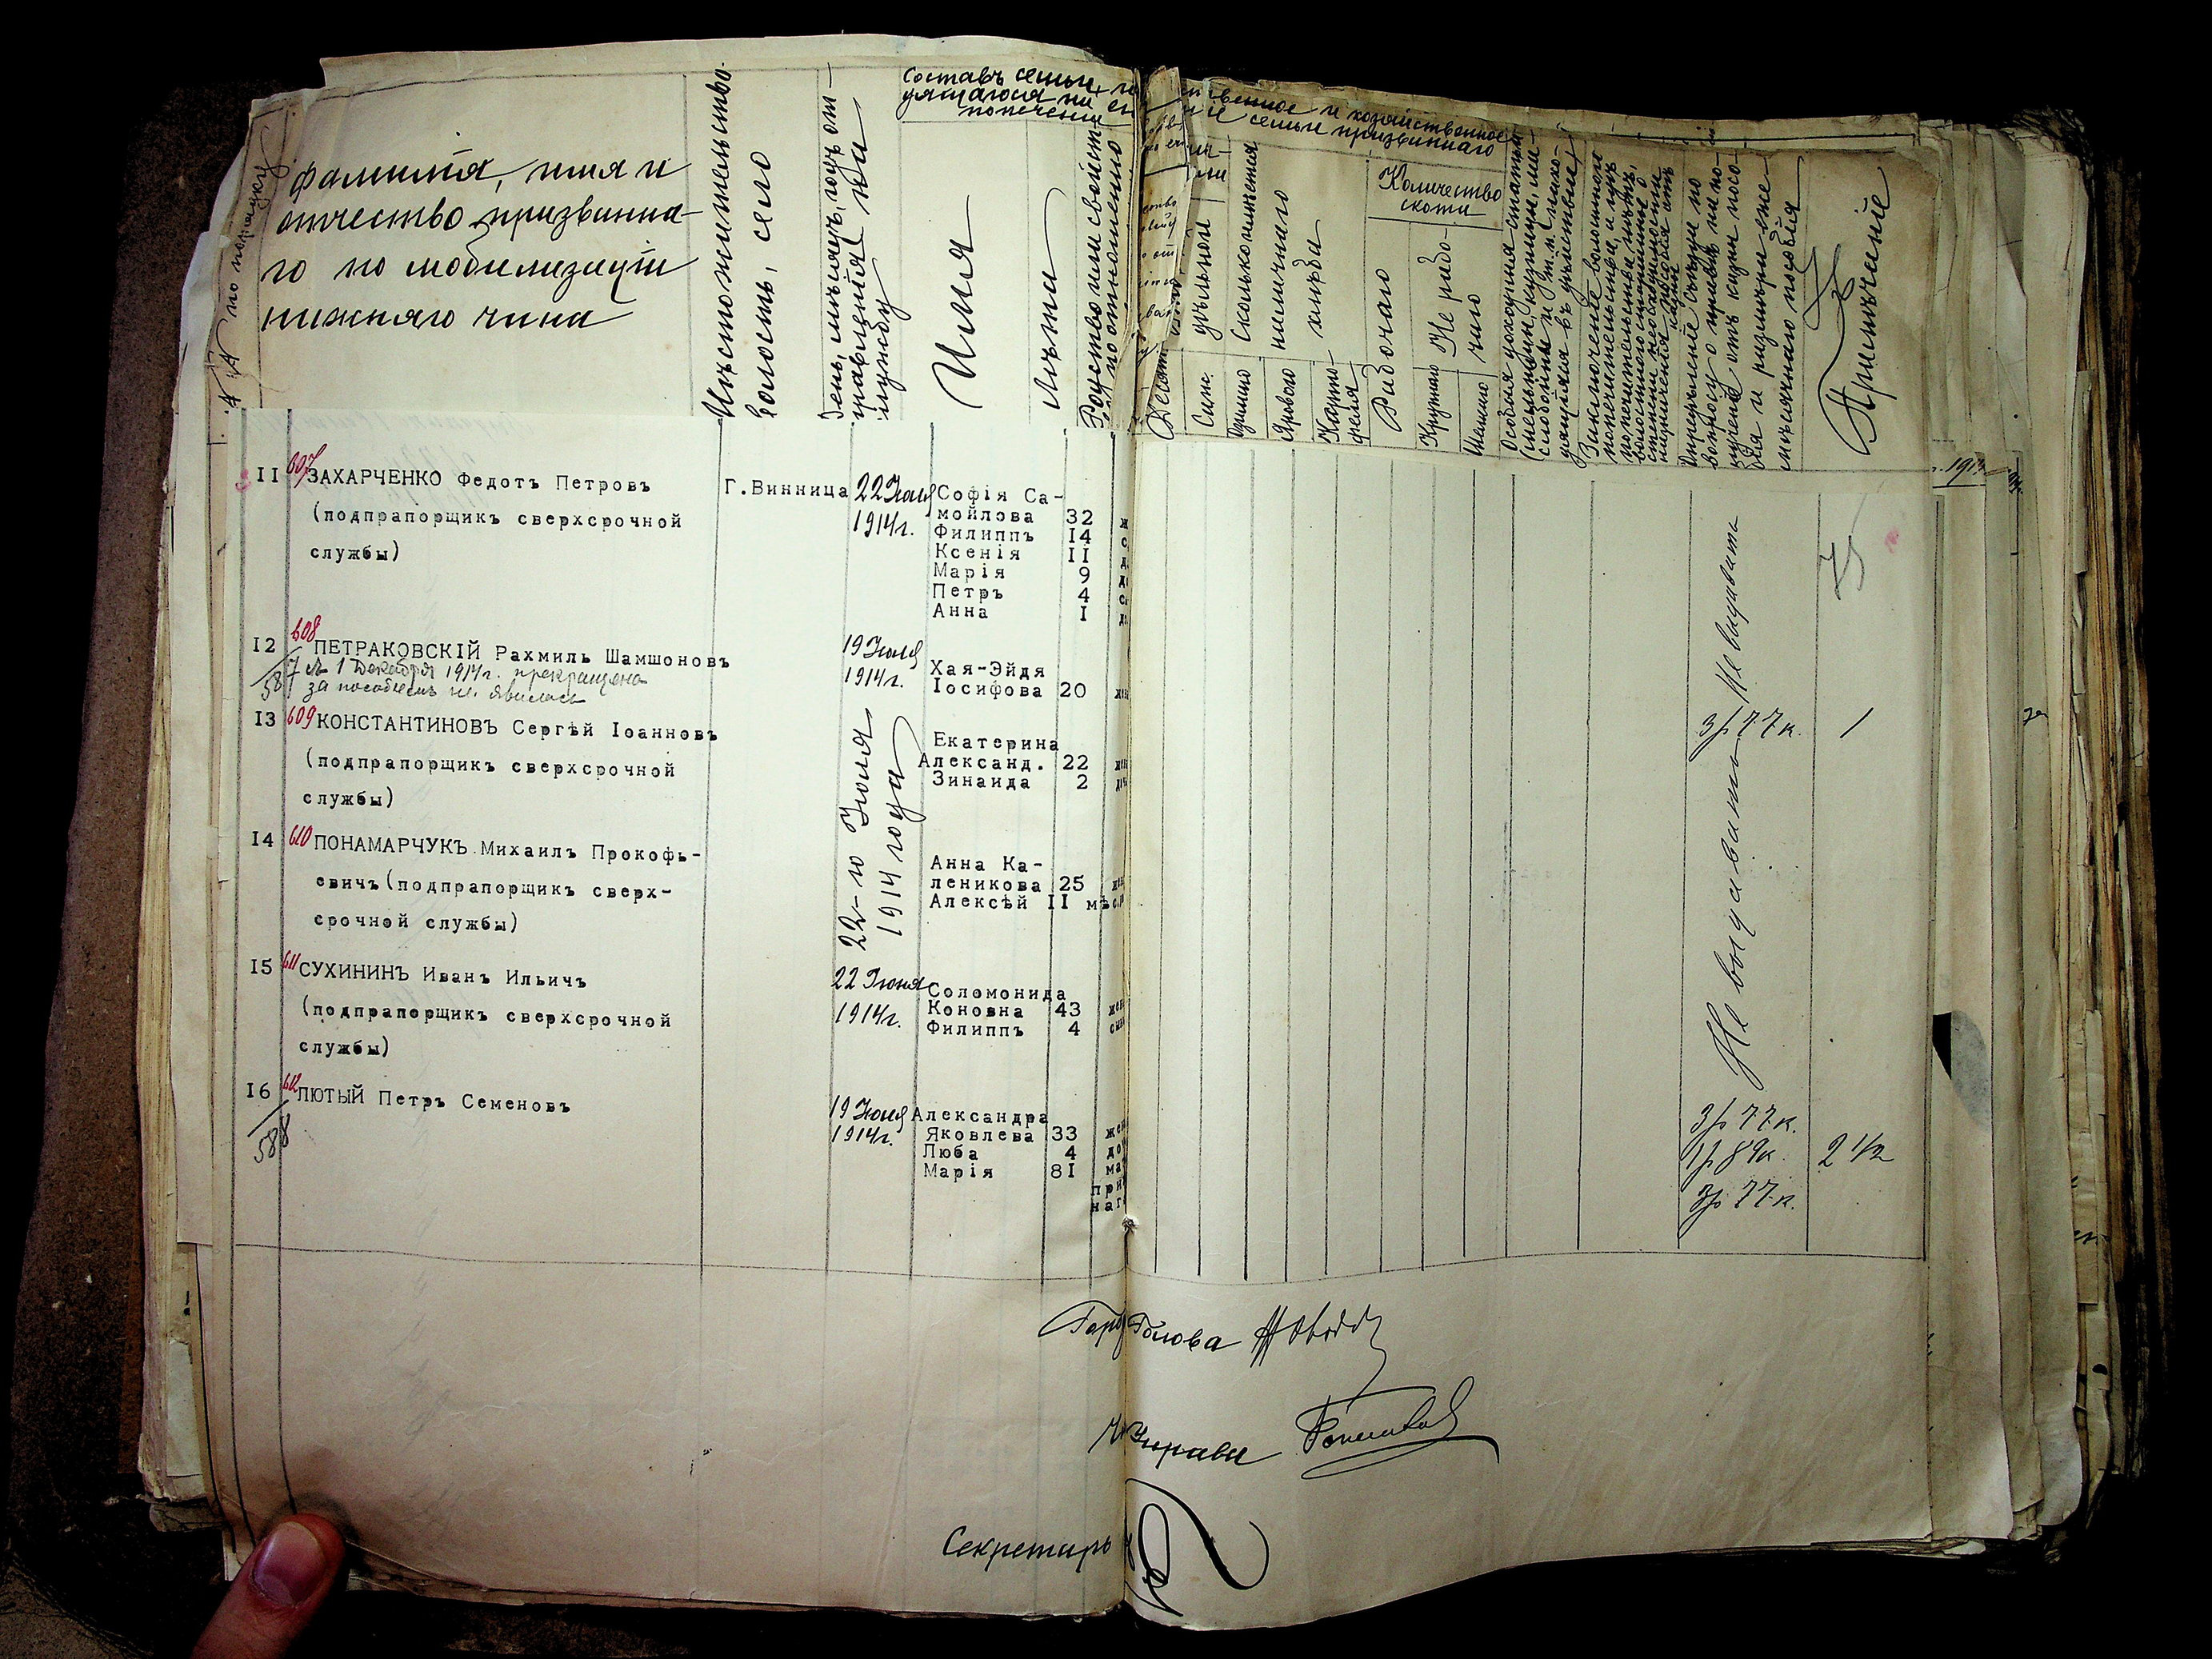 №№ по порядку
фамилія, имя и
отчество призванна-
го по мобилизаціи
нижняго чина
Мѣстожительство.
волость, село
День, мѣсяцъ, годъ от-
правленія на
службу
Составъ семьи, на
ея
попеченіи
Имя
Лѣта
Родство или свойство
по отношенію
семьи призваннаго
и хозяйственное
Сколько имѣется
наличнаго
хлѣба
Озимаго
Ярового
Карто-
феля
Количество
скота
Рабочаго
Не рабо-
чаго
Крупнаго
Мелкаго
Особыя доходныя статьи
Заключеніе волостного
попечительства
Опредѣленіе Съѣзда по
вопросу о правѣ на по-
лученіе отъ казны посо-
бія и размѣры еже-
мѣсячнаго пособія
Примѣчаніе
11 607 ЗАХАРЧЕНКО Федотъ Петровъ
(подпрапорщикъ сверхсрочной
службы)
Г.Винница
22 Іюля
1914г.
Софія Са-
мойлова 32
Филиппъ 14
Ксенія 11
Марія 9
Петръ 4
Анна 1
Не выдавать
75
12 608 ПЕТРАКОВСКІЙ Рахмиль Шамшоновъ
587 съ 1 Декабря 1914г. прекращена
за пособіемъ не явилась
19 Іюля
1914г.
Хая-Эйдя
Іосифова 20
3р 77к. 1
13 609 КОНСТАНТИНОВЪ Сергѣй Іоанновъ
(подпрапорщикъ сверхсрочной
службы)
22-го Іюля
1914 года
Екатерина
Александ. 22
Зинаида 2
Не выдавать
14 610 ПОНАМАРЧУКЪ Михаилъ Прокофь-
евичъ(подпрапорщикъ сверх-
срочной службы)
Анна Ка-
леникова 25
Алексѣй 11 мѣс.
15 611 СУХИНИНЪ Иванъ Ильичъ
(подпрапорщикъ сверхсрочной
службы)
22 Іюля
1914г.
Соломонида
Коновна 43
Филиппъ 4
16 612 ЛЮТЫЙ Петръ Семеновъ
588
19 Іюля
1914г.
Александра
Яковлева 33
Люба 4
Марія 81
3р 77к.
1р 89к. 2 1/2
3р 77к.
Гор. Голова
Управы
Секретарь